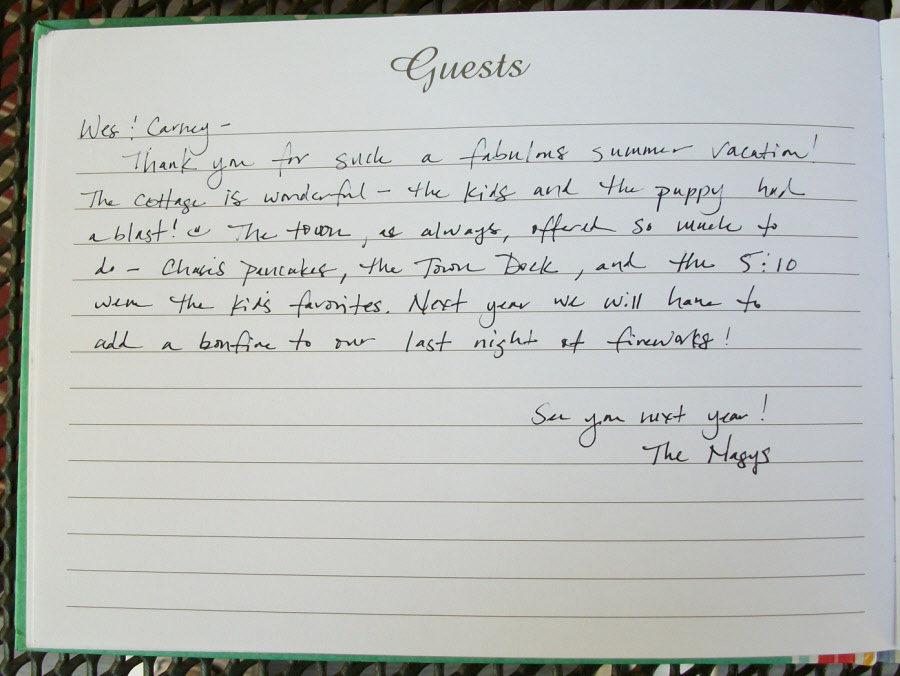 Guests
Wes ! Carney -
Thank you for such a fabulous summer vacation!
The cottage is wonderful - the kids and the puppy had
a blast! The town, as always, offered so much to
do - pancakes, the Town Dock, and the 5:10
were the kids favorites. Next year we will have to
add a bonfire to our last night of fireworks!
See you next year!
The Magys